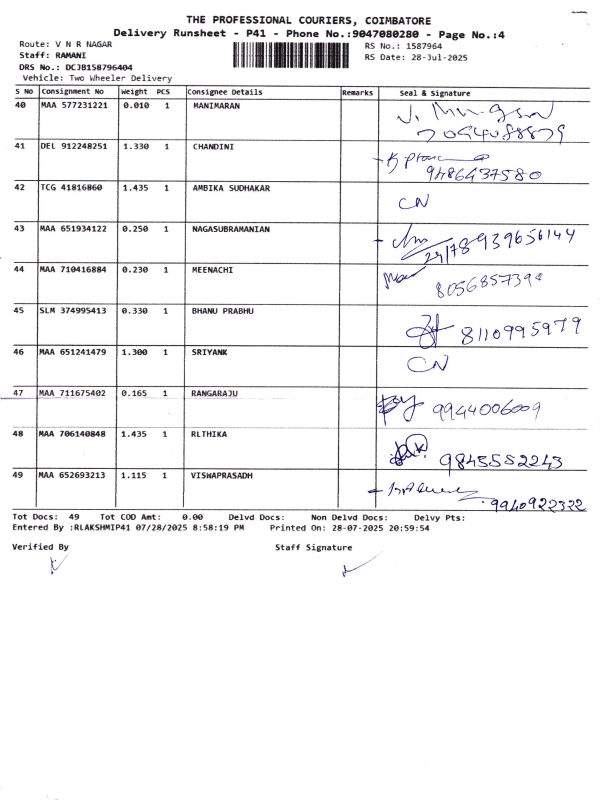 THE PROFESSIONAL COURIERS, COIMBATORE
Delivery Runsheet - P41 - Phone No.:9047080280 - Page No.:4
Route: V N R NAGAR RS No.: 1587964
Staff: RAMANI RS Date: 28-Jul-2025
DRS No.: DCJB158796404
Vehicle: Two Wheeler Delivery
S No Consignment No Weight PCS Consignee Details Remarks Seal & Signature
40 MAA 577231221 0.010 1 MANIMARAN
41 DEL 912248251 1.330 1 CHANDINI
9486437580
42 TCG 41816860 1.435 1 AMBIKA SUDHAKAR CN
43 MAA 651934122 0.250 1 NAGASUBRAMANIAN
8939656144
44 MAA 710416884 0.230 1 MEENACHI
45 SLM 374995413 0.330 1 BHANU PRABHU
8110995979
46 MAA 651241479 1.300 1 SRIYANK CN
47 MAA 711675402 0.165 1 RANGARAJU
9944006009
48 MAA 706140848 1.435 1 RLTHIKA
49 MAA 652693213 1.115 1 VISWAPRASADH
9940922322
Tot Docs: 49 Tot COD Amt: 0.00 Delvd Docs: Non Delvd Docs: Delvy Pts:
Entered By :RLAKSHMIP41 07/28/2025 8:58:19 PM Printed On: 28-07-2025 20:59:54
Verified By Staff Signature